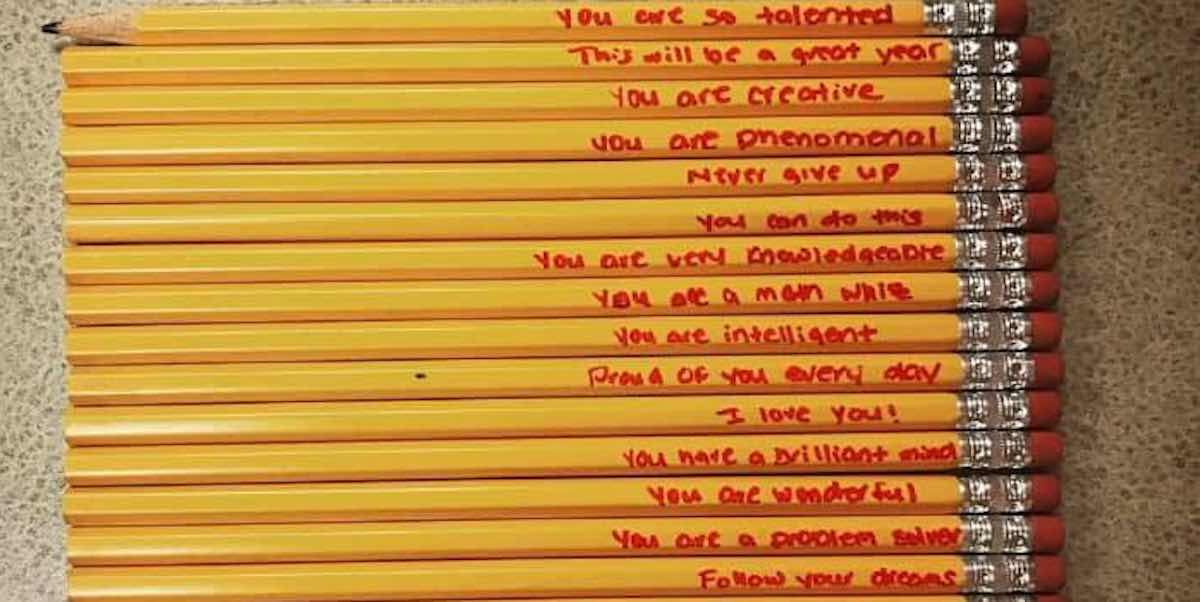 you are so talented
This will be a great year
You are creative
you are phenomenal
Never give up
You can do this
You are very knowledgeable
You are a math whiz
You are intelligent
Proud of you every day
I love you!
You have a brilliant mind
You are wonderful
You are a problem solver
Follow your dreams